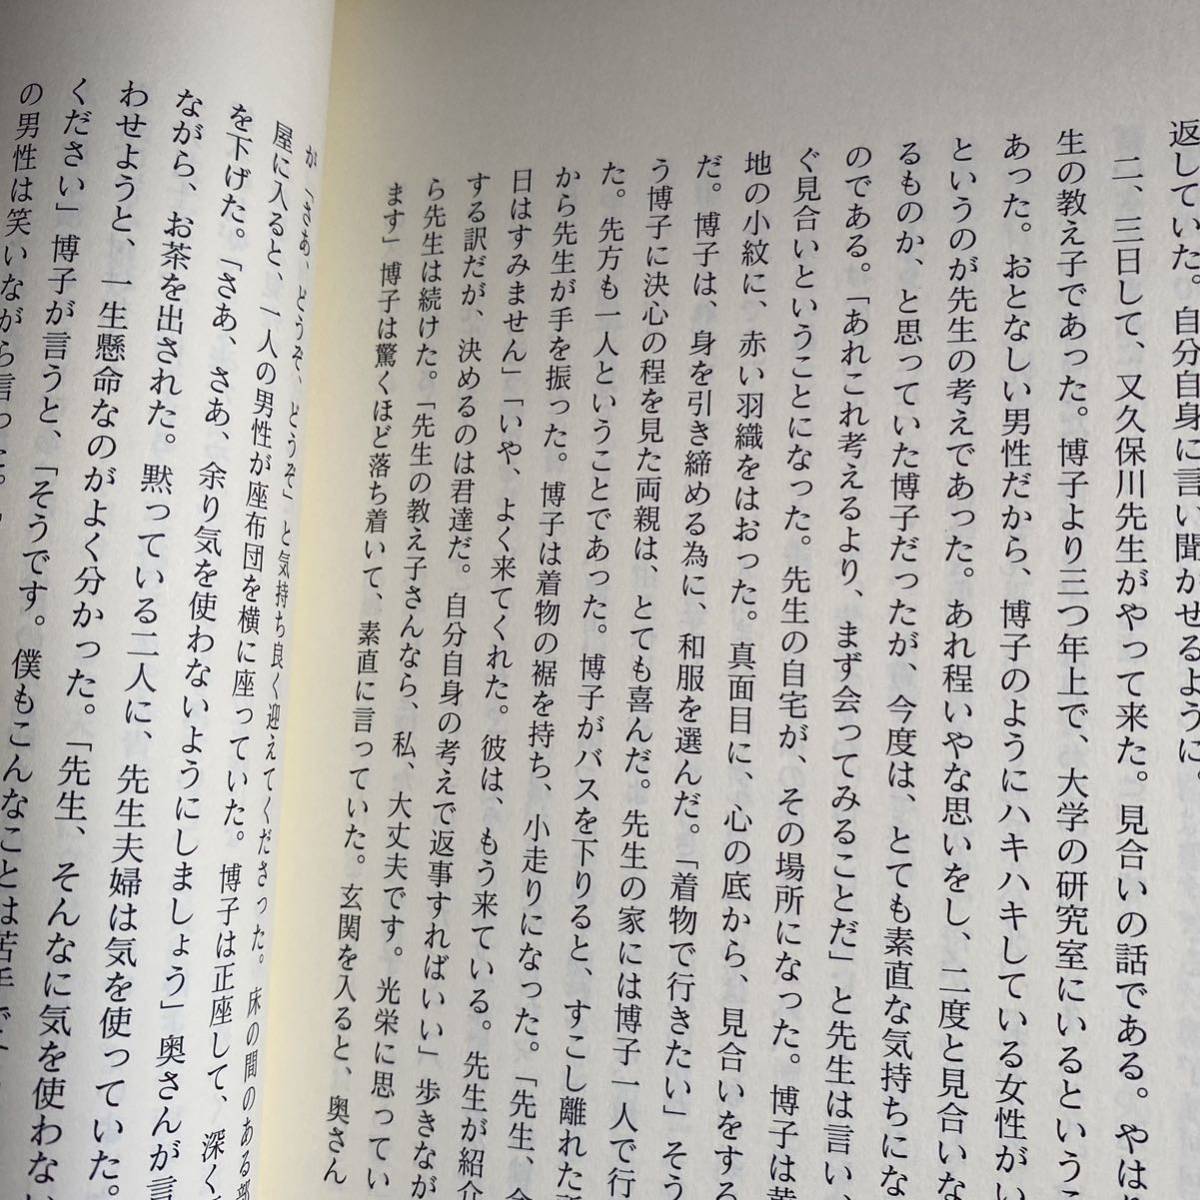 返していた。自分自身に言い聞かせるように。
二、三日して、又久保川先生がやって来た。見合いの話である。やは
生の教え子であった。博子より三つ年上で、大学の研究室にいるという
あった。おとなしい男性だから、博子のようにハキハキしている女性がい
というのが先生の考えであった。あれ程いやな思いをし、二度と見合いな
るものか、と思っていた博子だったが、今度は、とても素直な気持ちにな
のである。「あれこれ考えるより、まず会ってみることだ」と先生は言い、
ぐ見合いということになった。先生の自宅が、その場所になった。博子は黄
地の小紋に、赤い羽織をはおった。真面目に、心の底から、見合いをする
だ。博子は、身を引き締める為に、和服を選んだ。「着物で行きたい」そう
う博子に決心の程を見た両親は、とても喜んだ。先生の家には博子一人で行
た。先方も一人ということであった。博子がバスを下りると、すこし離れた
から先生が手を振った。博子は着物の裾を持ち、小走りになった。「先生、
日はすみません」「いや、よく来てくれた。彼は、もう来ている。先生が紹介
する訳だが、決めるのは君達だ。自分自身の考えで返事すればいい」歩きなが
ら先生は続けた。「先生の教え子さんなら、私、大丈夫です。光栄に思ってい
ます」博子は驚くほど落ち着いて、素直に言っていた。玄関を入ると、奥さん
が「さあ、どうぞ、どうぞ」と気持ち良く迎えてくださった。床の間のある部
屋に入ると、一人の男性が座布団を横に座っていた。博子は正座して、深く
を下げた。「さあ、さあ、余り気を使わないようにしましょう」奥さんが言
ながら、お茶を出された。黙っている二人に、先生夫婦は気を使っていた。
わせようと、一生懸命なのがよく分かった。「先生、そんなに気を使わな
ください」博子が言うと、「そうです。僕もこんなことは苦手で
の男性は笑いながら言った。